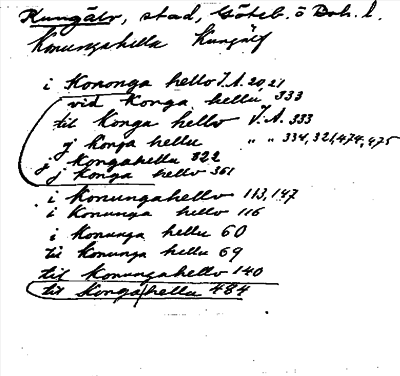 Kungälv, stad, Göteb. o Boh. l.
Konungahella Kungälf
i Kononga hello I.A. 20,21
vid Konga hellu „ 333
til Konga hello V.A. 333
j konga hellu „ „ 334, 321, 474, 475
j Kongahellu 322
j Konga hello 361
i Konungahello 113, 147
i Konunga hello 116
i Konunga hellu 60
til Konunga hellu 69
til Konungahello 140
til Konga hellu 484